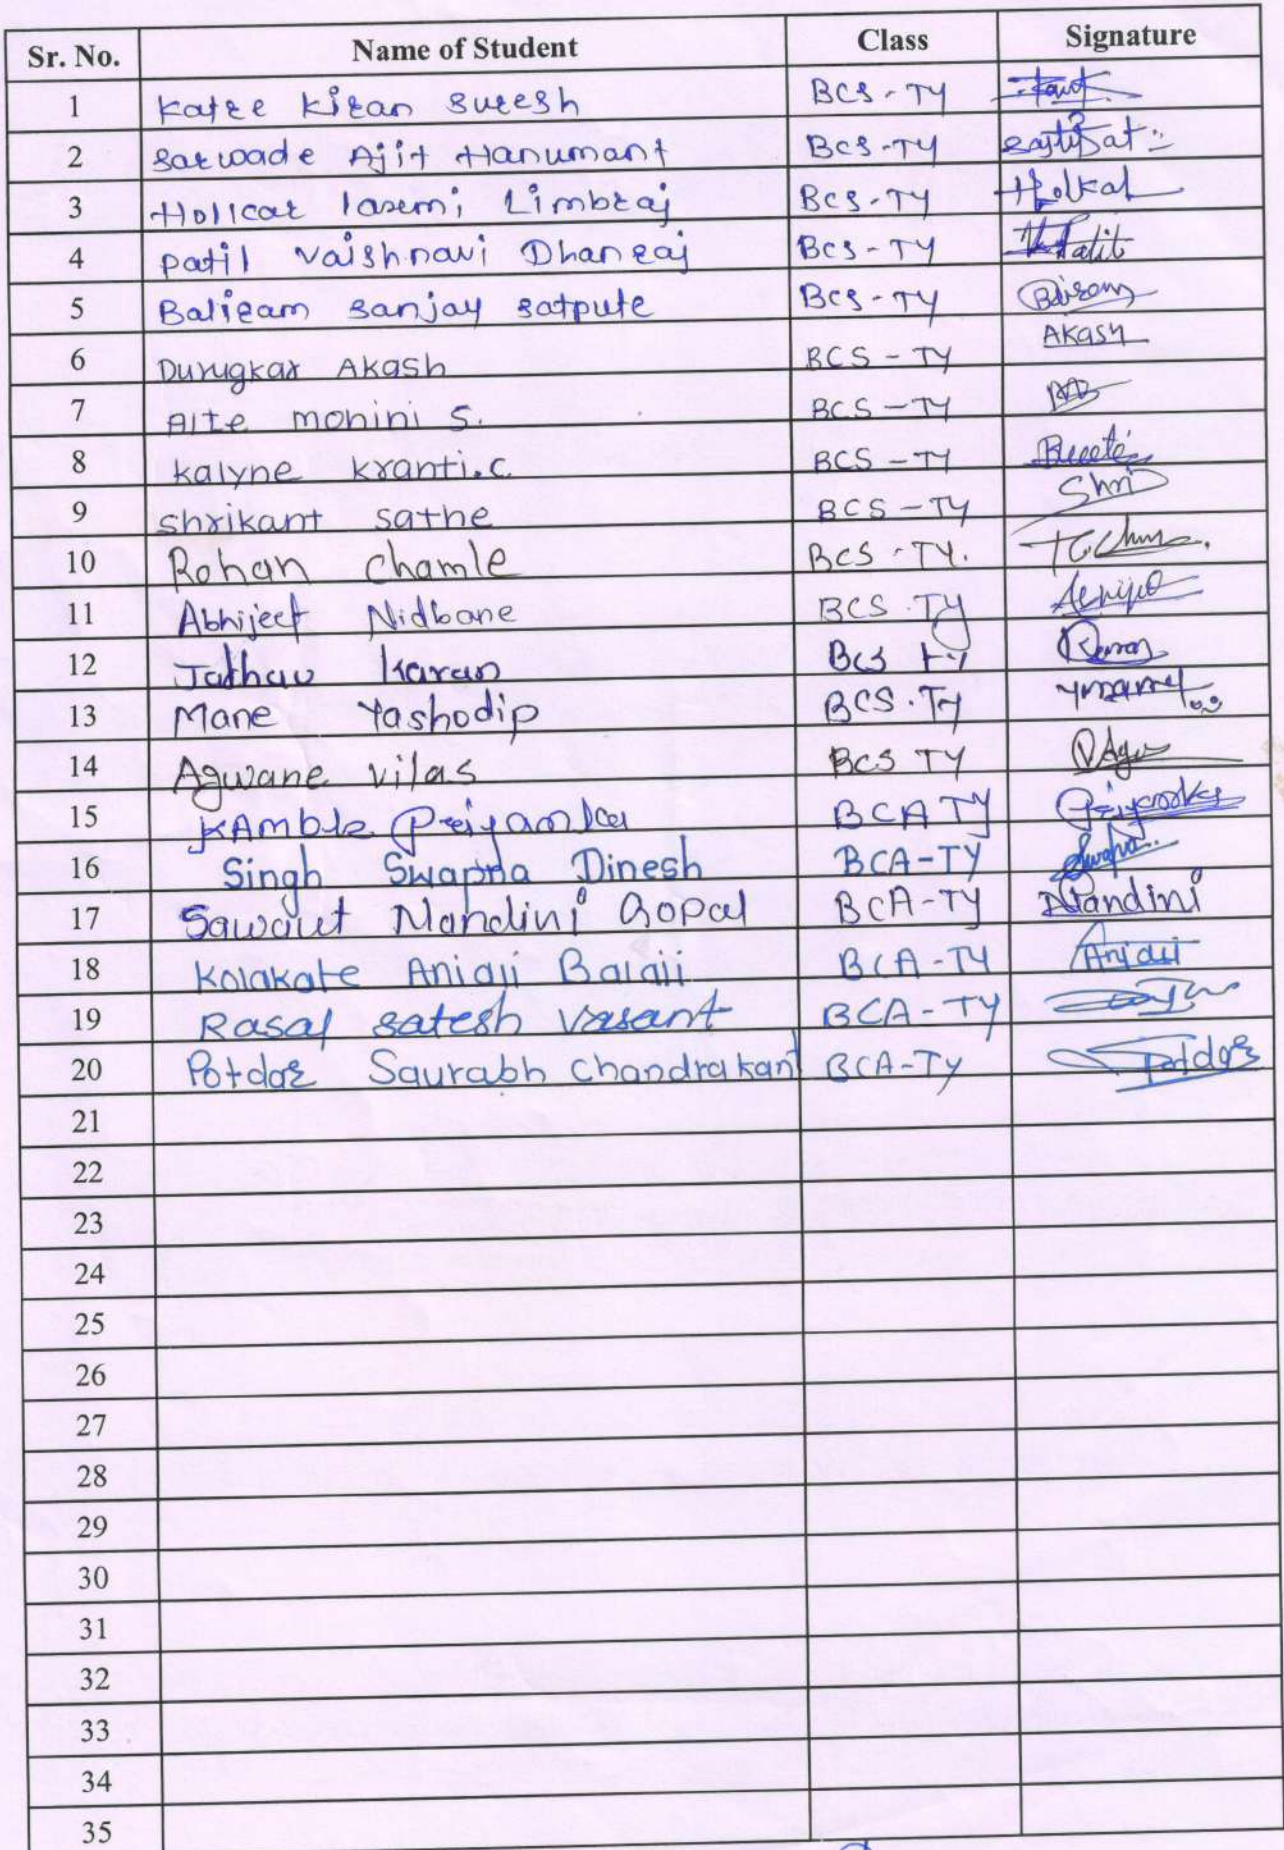 Sr. No. Name of Student Class Signature
1 Katre Kiran Suresh BCS-TY
2 Sarwade Ajit Hanumant BCS-TY
3 Holkar Laxmi Limbraj BCS-TY Holkar
4 Patil Vaishnavi Dhanraj BCS-TY Patil
5 Baliram Sanjay Satpute BCS-TY
6 Durugkar Akash BCS-TY Akash
7 Alte Mohini S. BCS-TY
8 Kalyne Kranti.C. BCS-TY
9 Shrikant Sathe BCS-TY Shri
10 Rohan Chamle BCS-TY.
11 Abhijeet Nidbane BCS.TY
12 Jadhav Karan BCS TY Karan
13 Mane Yashodip BCS.TY
14 Agwane Vilas BCS TY
15 KAmble Priyanka BCA TY Priyanka
16 Singh Swapna Dinesh BCA-TY Swapna
17 Sawant Nandini Gopal BCA-TY Nandini
18 Kolakate Anjali Balaji BCA-TY Anjali
19 Rasal Satesh Vasant BCA-TY
20 Potdar Saurabh Chandrakant BCA-TY Potdar
21
22
23
24
25
26
27
28
29
30
31
32
33
34
35